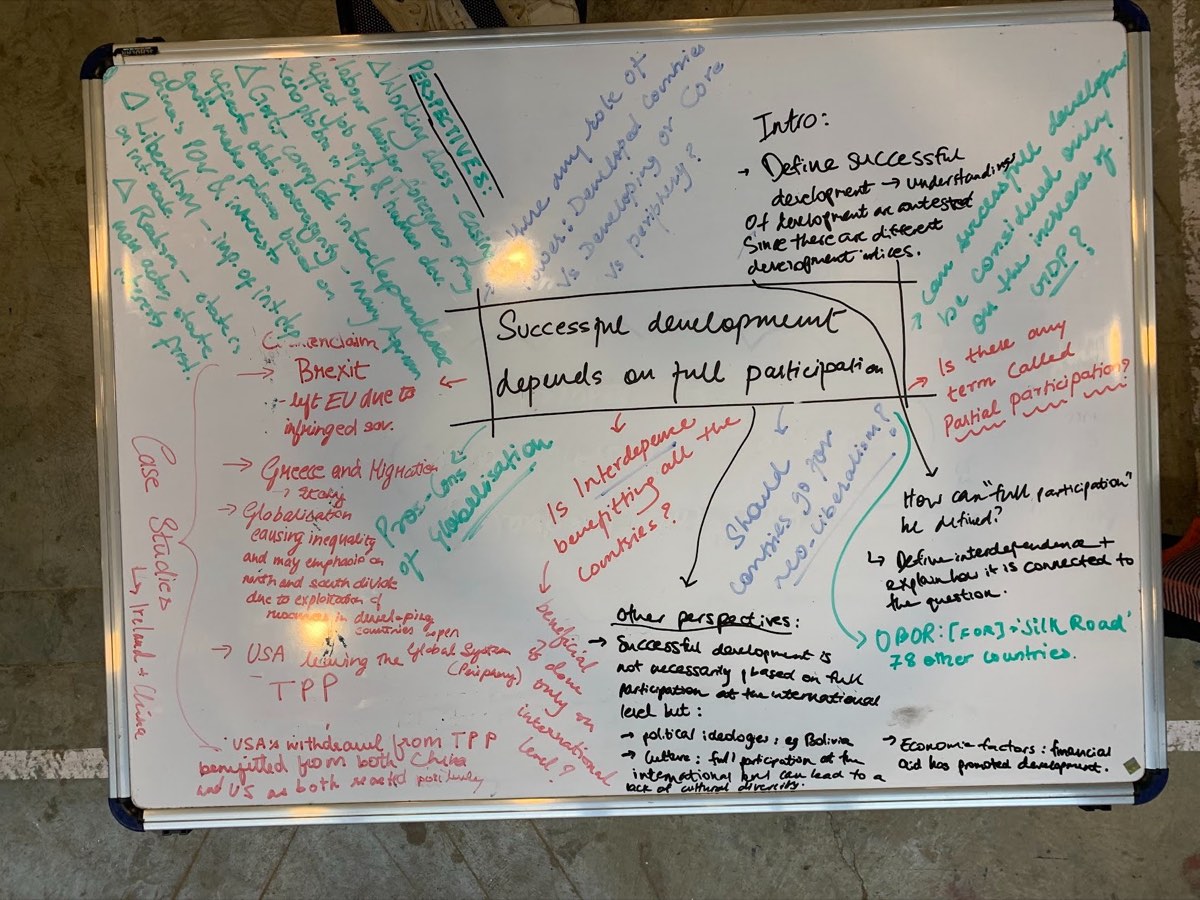 PERSPECTIVES:
Δ Working class - easing
labour laws for foreigners may
affect job oppt & further dev.
Xenophobia
Δ Govt - complete interdependence
affects state sovereignty - Many African
govts make policies based on
china's POV & interests
Δ Liberalism - imp. of interdep
on int scale.
Δ Realism - state is
main actor, state
interests first.
there any role of
power: Developed countries
Vs Developing or Core
vs periphery?
Intro:
→ Define successful
development → understandings
of development are contested
Since there are different
development indices.
? Can successful development
be considered only
on the increase of
GDP?
Successful development
depends on full participation
→ Is there any
term called
Partial participation?
Counterclaim
→ Brexit
- left EU due to
infringed sov.
→ Greece and Migration
→ Globalisation
causing inequality
and may emphasise on
north and south divide
due to exploitation of
resources in developing
countries open
→ USA leaving the Global System
(Periphery)
- TPP
USA's withdrawl from TPP
benefitted from both China
and US as both reacted
Case Studies
↳ Ireland + China
Pros-Cons
of Globalisation
Is Interdepence
benefitting all the
countries?
→ beneficial
if done
only on
international
level?
Should
countries go for
neo-liberalism?
How can "full participation"
be defined?
↳ Define interdependence +
explain how it is connected to
the question.
→ OBOR: [FOR] → 'Silk Road'
78 other countries.
Other perspectives:
→ Successful development is
not necessarily based on full
participation at the international
level but:
→ political ideologies, eg Bolivia
→ Culture: full participation at the
international level can lead to a
lack of cultural diversity.
→ Economic factors: financial
aid has promoted development.